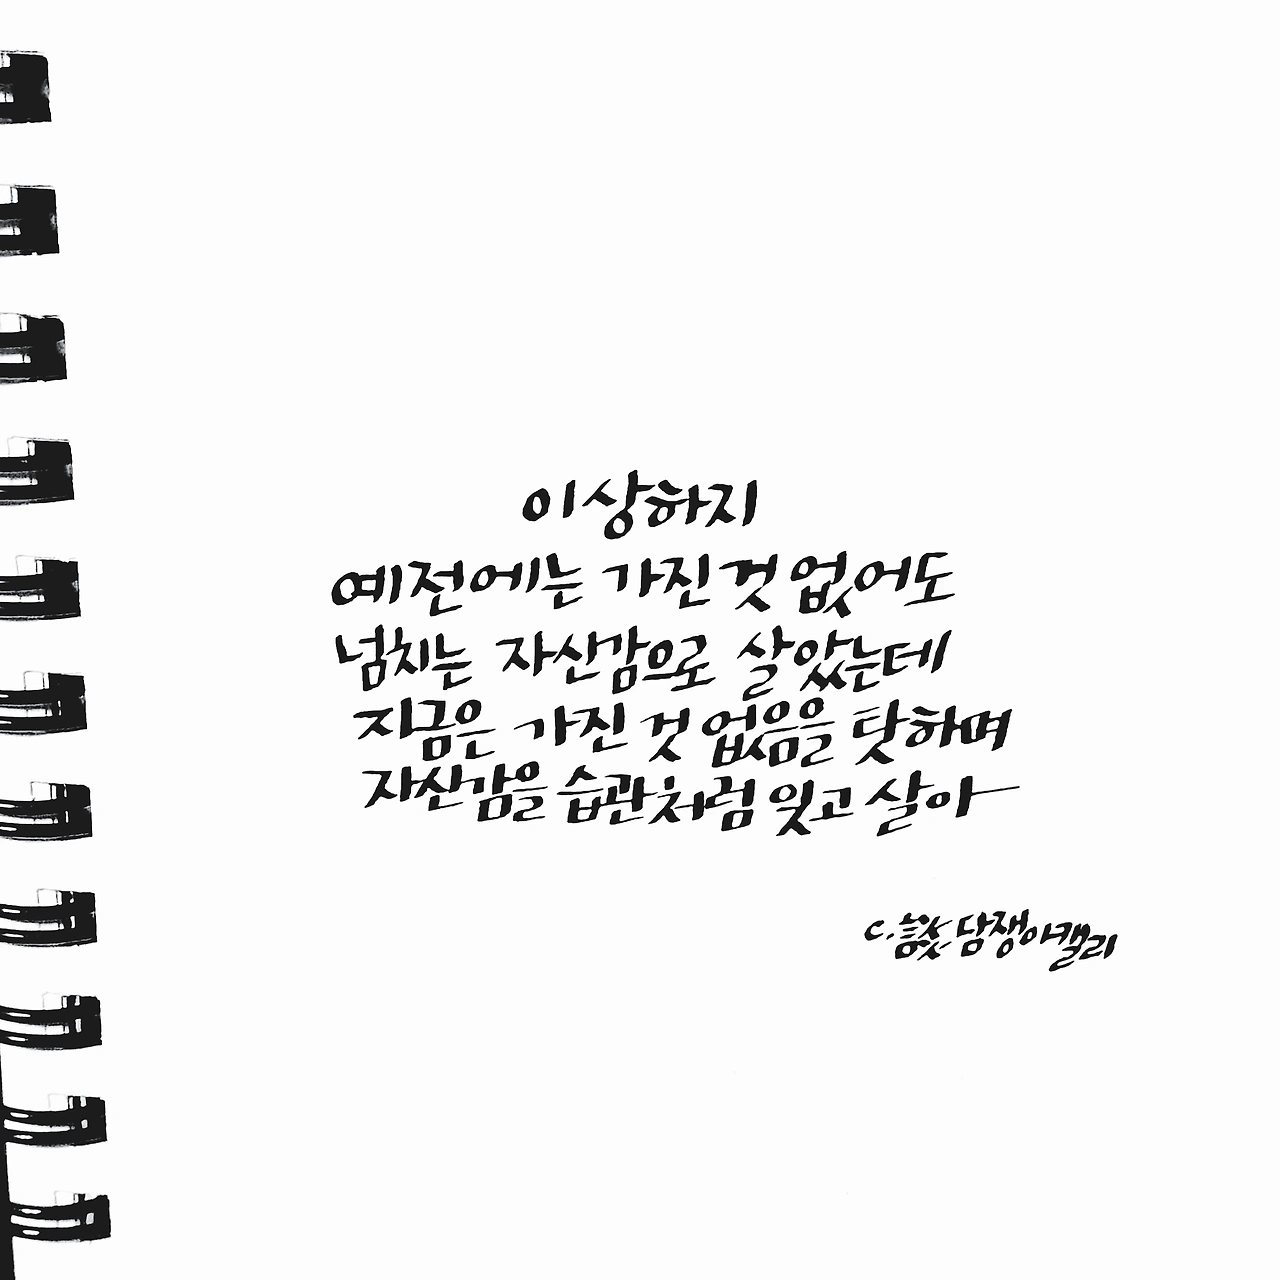 이상하지
예전에는 가진 것 없어도
넘치는 자신감으로 살았는데
지금은 가진 것 없음을 탓하며
자신감을 습관처럼 잊고 살아
C. 談 담쟁이캘리